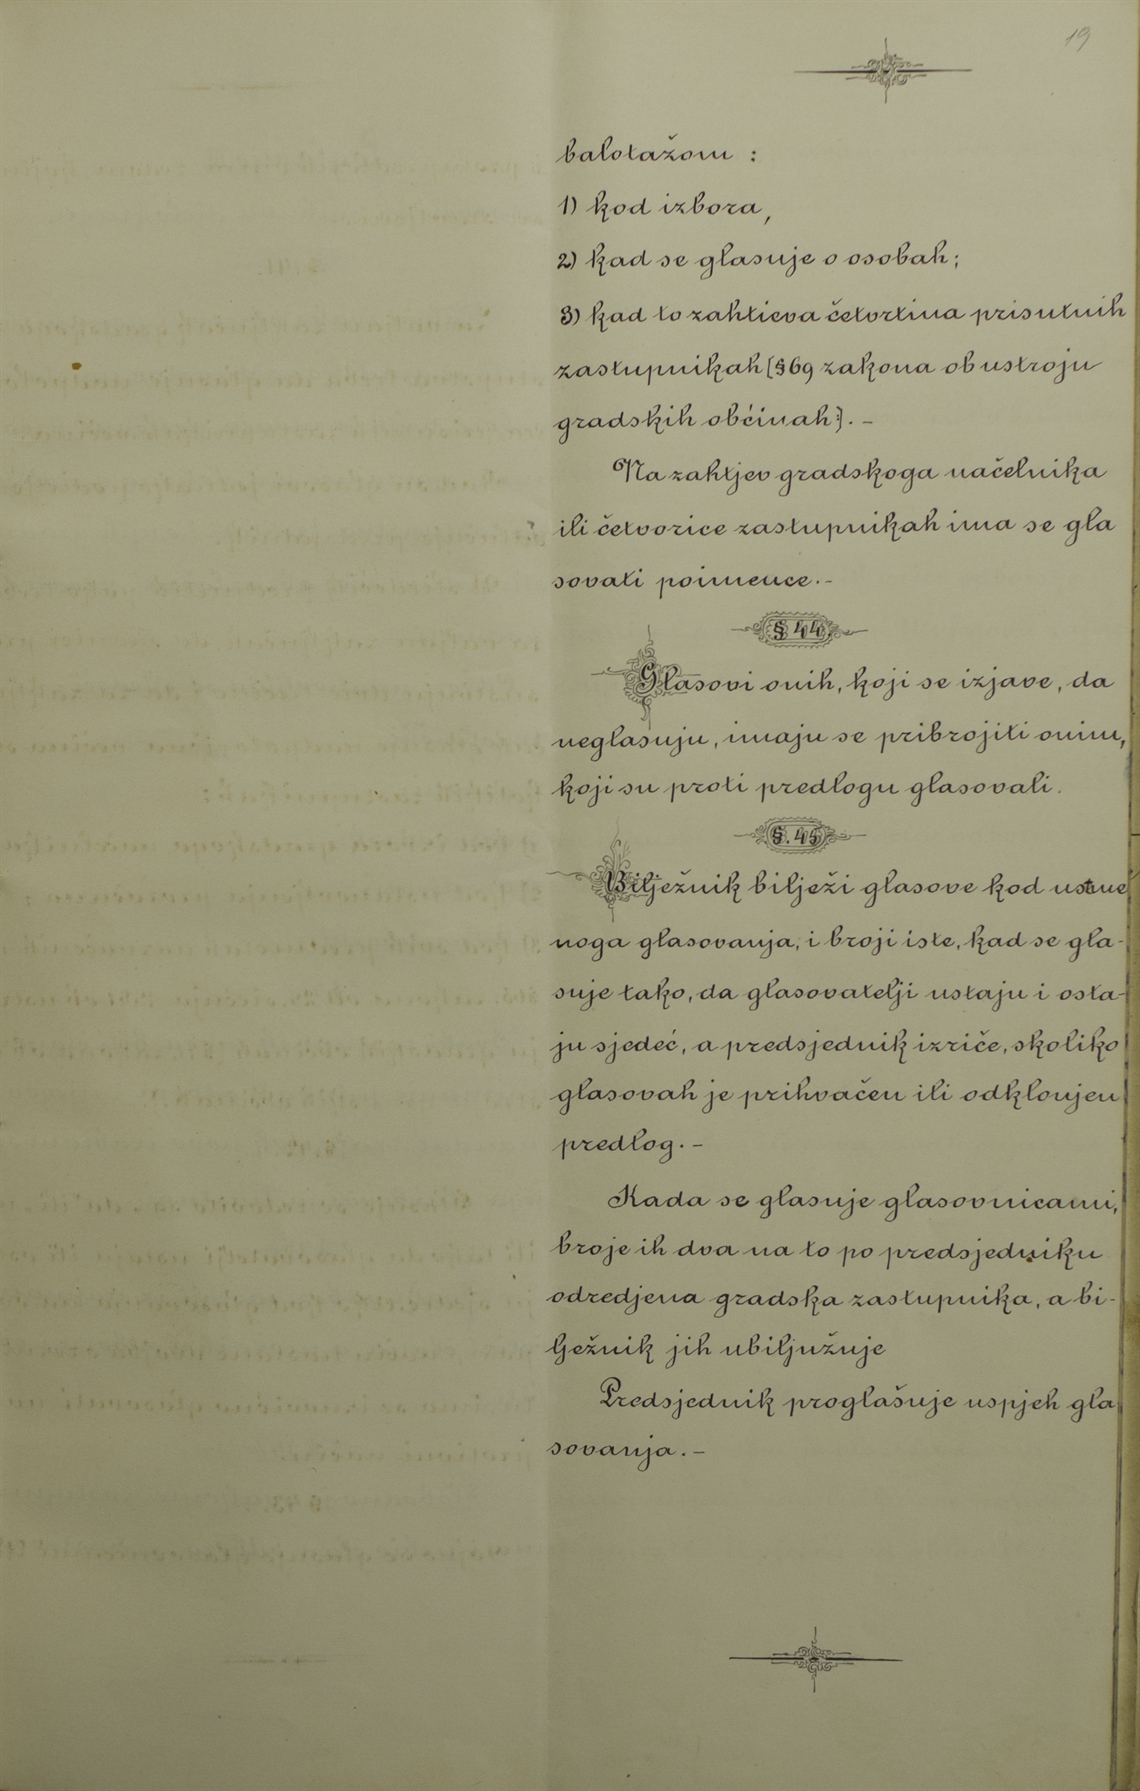 19
balotažom :
1) kod izbora,
2) kad se glasuje o osobah;
3) kad to zahtieva četvrtina prisutnih
zastupnikah [§69 zakona ob ustroju
gradskih obćinah:]. -
Na zahtjev gradskoga načelnika
ili četvorice zastupnikah ima se gla
sovati poimence. -
§ 44.
Glasovi onih, koji se izjave, da
neglasuju, imaju se pribrojiti onim,
koji su proti predlogu glasovali.
§. 45.
Bilježnik bilježi glasove kod ustme
noga glasovanja, i broji iste, kad se gla-
suje tako, da glasovatelji ustaju i osta-
ju sjedeć, a predsjednik izriče, skoliko
glasovah je prihvačen ili odklonjen
predlog. -
Kada se glasuje glasovnicami,
broje ih dva na to po predsjedniku
odredjena gradska zastupnika, a bi-
lježnik jih ubiljužuje
Predsjednik proglašuje uspjeh gla
sovanja. -